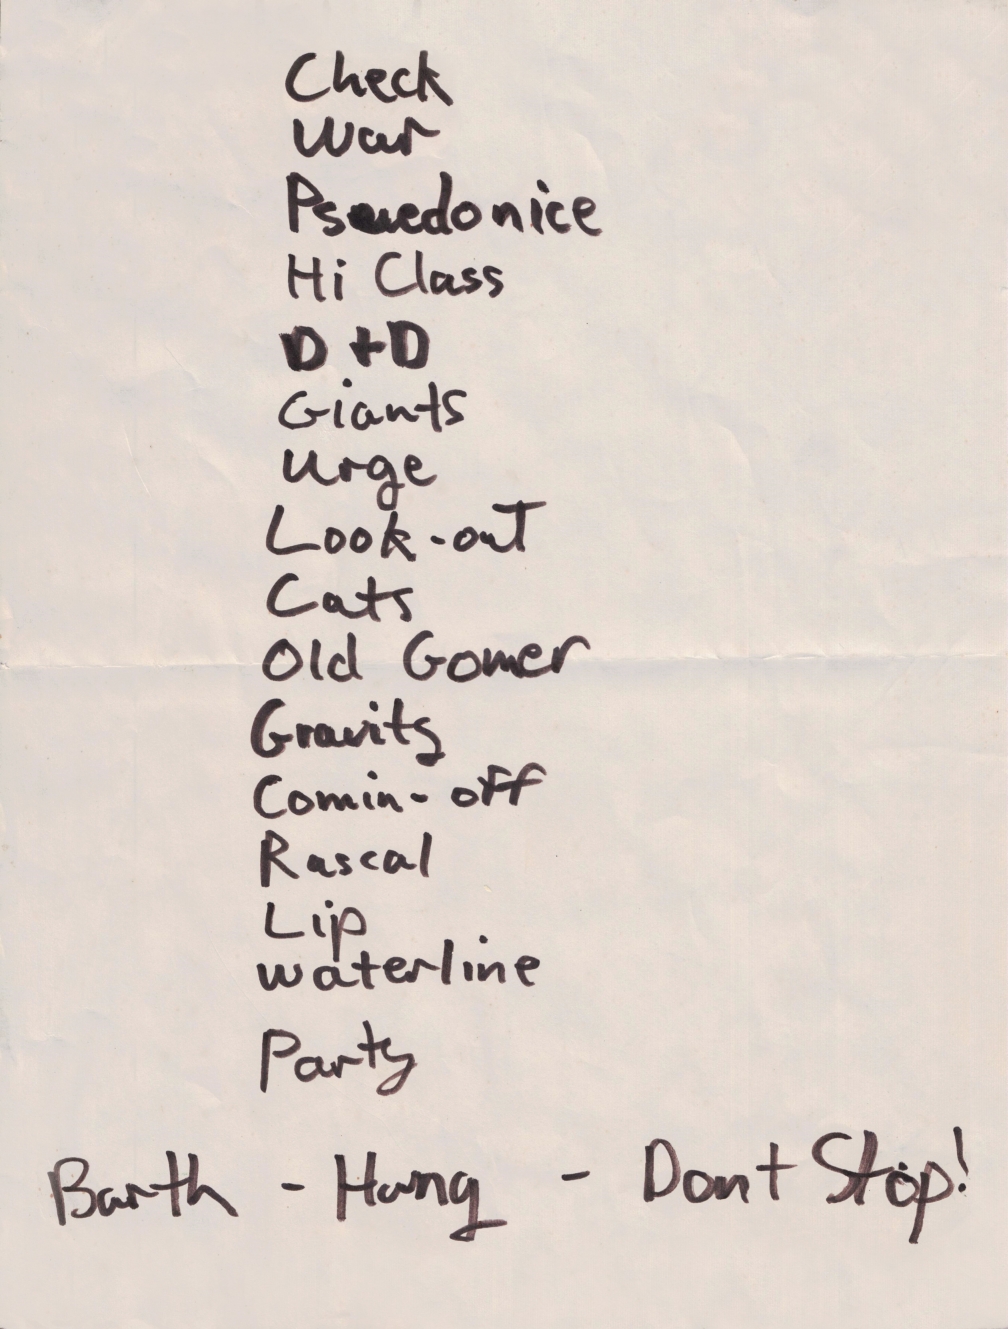 Check
War
Psuedonice
Hi Class
D+D
Giants
Urge
Look-out
Cats
Old Gomer
Gravity
Comin-off
Rascal
Lip
waterline
Party
Barth - Hang - Dont Stop!